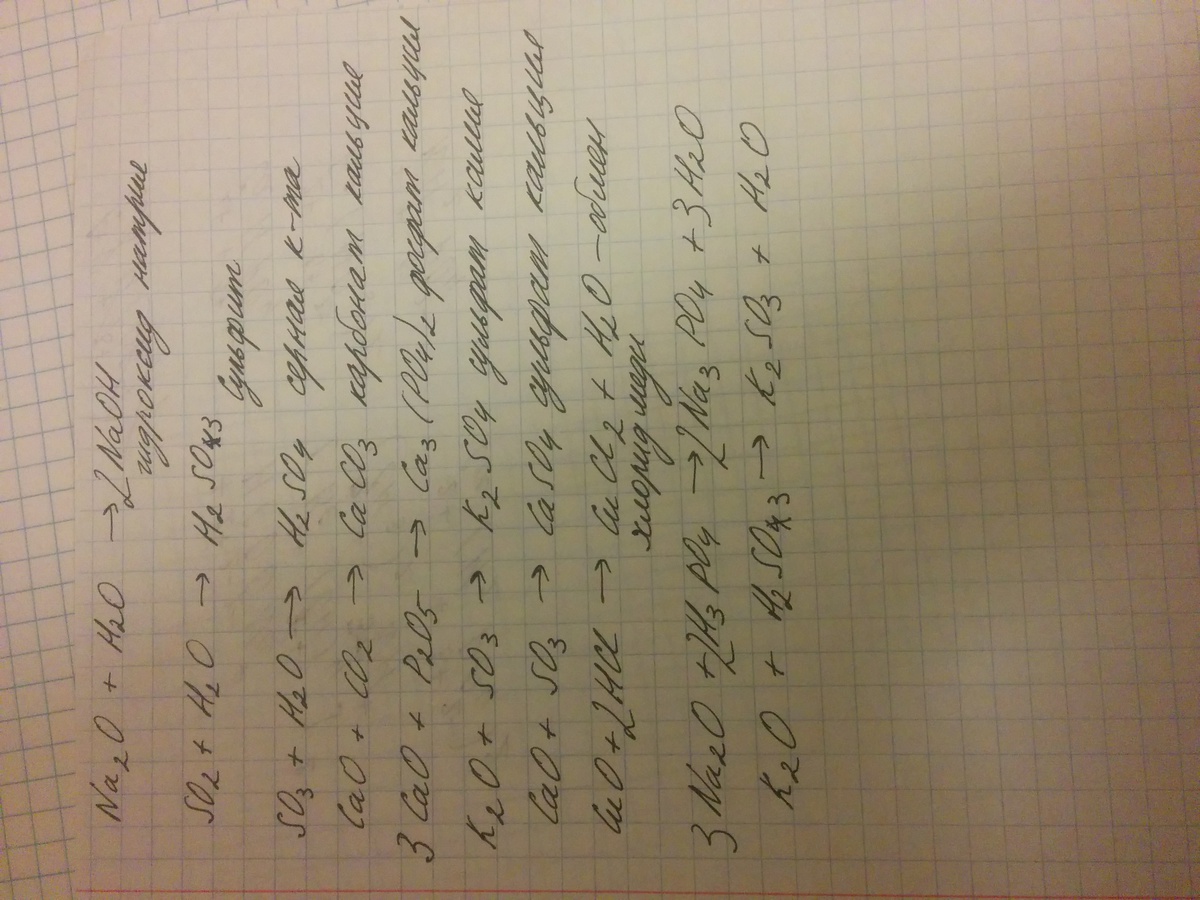 Na2O + H2O → 2NaOH
гидроксид натрия
SO2 + H2O → H2SO3
Сульфит
SO3 + H2O → H2SO4 серная к-та
CaO + CO2 → CaCO3 карбонат кальция
3CaO + P2O5 → Ca3(PO4)2 фосфат кальция
K2O + SO3 → K2SO4 сульфат калия
CaO + SO3 → CaSO4 сульфат кальция
CuO + 2HCl → CuCl2 + H2O – обмен
хлорид меди
3Na2O + 2H3PO4 → 2Na3PO4 + 3H2O
K2O + H2SO3 → K2SO3 + H2O